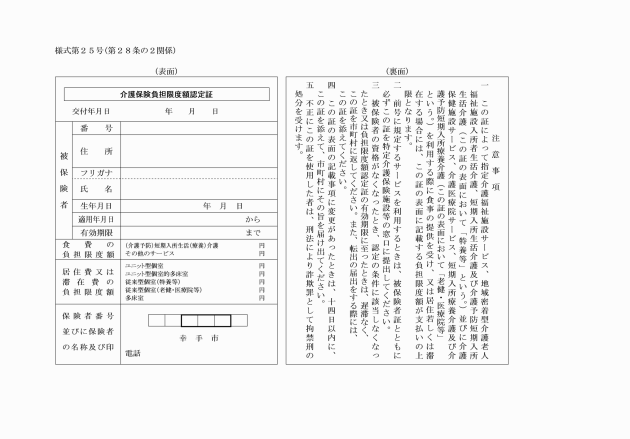 様式第２５号(第２８条の２関係)
(表面)
介護保険負担限度額認定証
交付年月日　年　月　日
被保険者
番　号
住　所
フリガナ
氏　名
生年月日　年　月　日
適用年月日　から
有効期限　まで
食費の
負担限度額
(介護予防)短期入所生活(療養)介護　円
その他のサービス　円
居住費又は
滞在費の
負担限度額
ユニット型個室　円
ユニット型個室的多床室　円
従来型個室(特養等)　円
従来型個室(老健・医療院等)　円
多床室　円
保険者番号
並びに保険者
の名称及び印
幸　手　市
電話
(裏面)
注　意　事　項
一　この証によって指定介護福祉施設サービス、地域密着型介護老人
福祉施設入所者生活介護、短期入所生活介護及び介護予防短期入所
生活介護（この証の表面において「特養等」という。）並びに介護
保健施設サービス、介護医療院サービス、短期入所療養介護及び介
護予防短期入所療養介護（この証の表面において「老健・医療院等」
という。）を利用する際に食事の提供を受け、又は居住若しくは滞
在する場合には、この証の表面に記載する負担限度額が支払いの上
限となります。
二　前号に規定するサービスを利用するときは、被保険者証とともに
必ずこの証を特定介護保険施設等の窓口に提出してください。
三　被保険者の資格がなくなったとき、認定の条件に該当しなくなっ
たとき又は負担限度額認定証の有効期限に至ったときは、遅滞なく、
この証を市町村に返してください。また、転出の届出をする際には、
この証を添えてください。
四　この証の表面の記載事項に変更があったときは、十四日以内に、
この証を添えて、市町村にその旨を届け出てください。
五　不正にこの証を使用した者は、刑法により詐欺罪として拘禁刑の
処分を受けます。